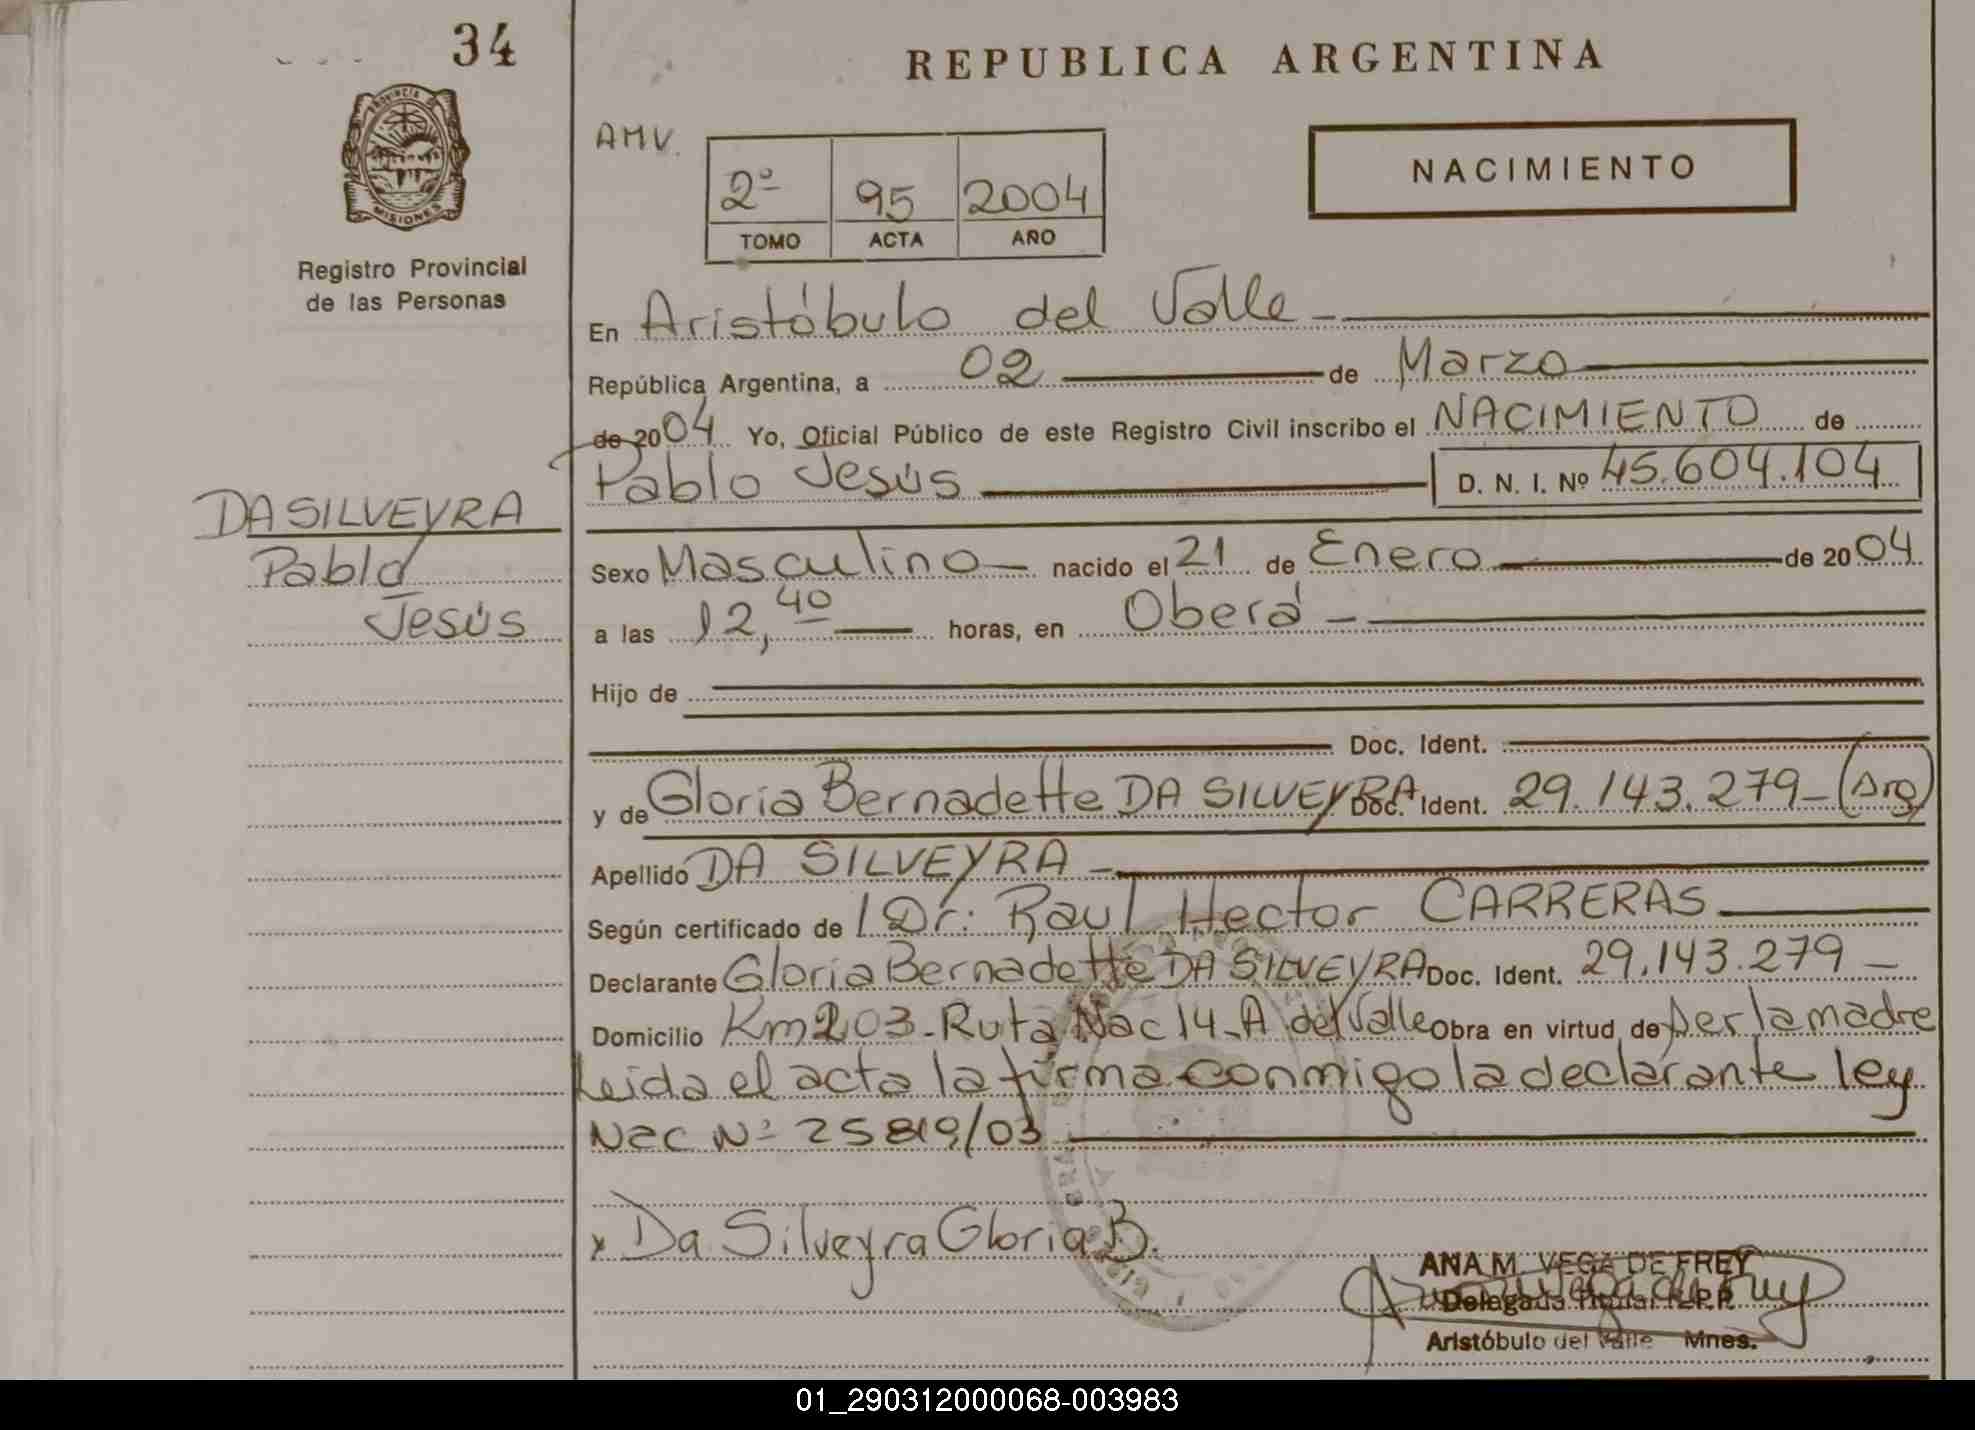 34
REPUBLICA ARGENTINA
PROVINCIA DE
MISIONES
Registro Provincial
de las Personas
AMV.
2º 95 2004
TOMO ACTA AÑO
NACIMIENTO
En Aristóbulo del Valle
República Argentina, a 02 de Marzo
de 2004 Yo, Oficial Público de este Registro Civil inscribo el NACIMIENTO de
Pablo Jesús D. N. I. Nº 45.604.104
DA SILVEYRA
Pablo
Jesús
Sexo Masculino nacido el 21 de Enero de 2004
a las 12,40 horas, en Oberá
Hijo de
Doc. Ident.
y de Gloria Bernadette DA SILVEYRA Doc. Ident. 29.143.279 (Arg)
Apellido DA SILVEYRA
Según certificado de l Dr: Raul Hector CARRERAS
Declarante Gloria Bernadette DA SILVEYRA Doc. Ident. 29.143.279
Domicilio Km 203 - Ruta Nac 14 - A del Valle Obra en virtud de ser la madre
Leida el acta la firma conmigo la declarante ley
Nac Nº 25819/03
x Da Silveyra Gloria B.
ANA M. VEGA DE FREY
Delegada Titular R.P.P.
Aristóbulo del Valle Mnes.
01_290312000068-003983